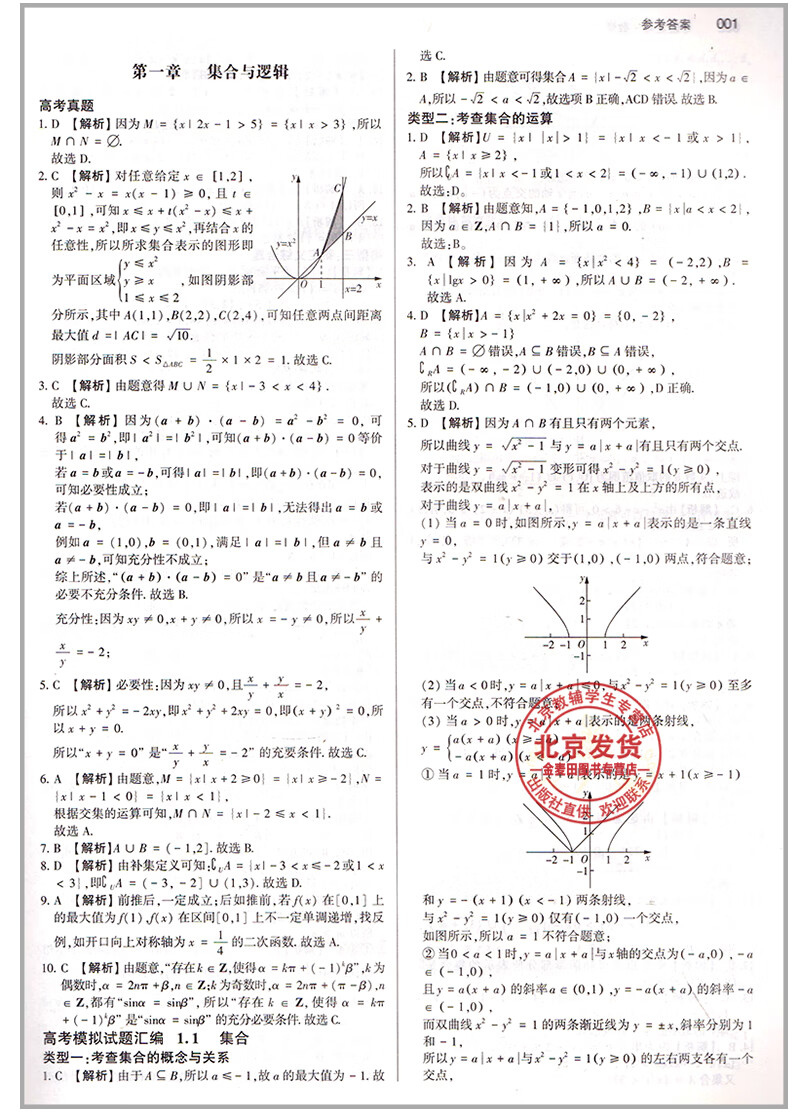 参考答案 001
第一章 集合与逻辑
高考真题
1. D 【解析】因为 M = {x| 2x - 1 > 5} = {x| x > 3} ,所以
M ∩ N = ∅.
故选 D.
2. C 【解析】对任意给定 x ∈ [1,2] ,
则 x² - x = x(x - 1) ≥ 0, 且 t ∈
[0,1] ,可知 x ≤ x + t(x² - x) ≤ x +
x² - x = x²,即 x ≤ y ≤ x²,再结合 x 的
任意性,所以所求集合表示的图形即
为平面区域{y ≤ x² y ≥ x 1 ≤ x ≤ 2 ,如图阴影部
y C y=x y=x² B A O 1 x=2 x
分所示,其中 A(1,1) ,B(2,2) ,C(2,4) ,可知任意两点间距离
最大值 d =| AC| = √10.
阴影部分面积 S < S△ABC = 1/2 × 1 × 2 = 1. 故选 C.
3. C 【解析】由题意得 M ∪ N = {x| - 3 < x < 4} .
故选 C.
4. B 【解析】因为 (a + b) · (a - b) = a² - b² = 0, 可
得 a² = b²,即| a²| =| b²| ,可知(a + b) · (a - b) = 0 等价
于| a| =| b| ,
若 a = b 或 a = - b,可得| a| =| b| ,即(a + b) · (a - b) = 0,
可知必要性成立;
若(a + b) · (a - b) = 0,即| a| =| b| ,无法得出 a = b 或
a = - b,
例如 a = (1,0) ,b = (0,1) ,满足| a| =| b| ,但 a ≠ b 且
a ≠ - b,可知充分性不成立;
综上所述,“(a + b) · (a - b) = 0” 是“a ≠ b 且 a ≠ - b” 的
必要不充分条件. 故选 B.
充分性:因为 xy ≠ 0,x + y ≠ 0,所以 x = - y ≠ 0,所以 x/y +
x/y = - 2;
5. C 【解析】必要性:因为 xy ≠ 0,且 x/y + y/x = - 2,
所以 x² + y² = - 2xy,即 x² + y² + 2xy = 0,即(x + y)² = 0,所
以 x + y = 0.
所以“x + y = 0” 是“x/y + y/x = - 2” 的充要条件. 故选 C.
6. A 【解析】由题意,M = {x| x + 2 ≥ 0} = {x| x ≥ - 2} ,N =
{x| x - 1 < 0} = {x| x < 1} ,
根据交集的运算可知,M ∩ N = {x| - 2 ≤ x < 1} .
故选 A.
7. B 【解析】A ∪ B = ( - 1,2]. 故选 B.
8. D 【解析】由补集定义可知:∁UA = {x| - 3 < x ≤ - 2 或 1 < x
< 3} ,即∁UA = ( - 3, - 2] ∪ (1,3). 故选 D.
9. A 【解析】前推后,一定成立;后如推前,若 f(x) 在[0,1] 上
的最大值为 f(1) ,f(x) 在区间[0,1] 上不一定单调递增,找反
例,如开口向上对称轴为 x = 1/4 的二次函数. 故选 A.
10. C 【解析】由题意,“存在 k ∈ Z,使得 α = kπ + ( - 1)ᵏβ”,k 为
偶数时,α = 2nπ + β,n ∈ Z;k 为奇数时,α = 2nπ + (π - β) ,n
∈ Z,都有“sinα = sinβ”, 所以“存在 k ∈ Z, 使得 α = kπ
+ ( - 1)ᵏβ” 是“sinα = sinβ” 的充分必要条件. 故选 C.
高考模拟试题汇编 1.1 集合
类型一:考查集合的概念与关系
1. C 【解析】由于 A ⊆ B,所以 a ≤ - 1,故 a 的最大值为 - 1. 故
选 C.
2. B 【解析】由题意可得集合 A = {x| - √2 < x < √2} ,因为 a ∈
A,所以 - √2 < a < √2,故选项 B 正确,ACD 错误. 故选 B.
类型二:考查集合的运算
1. D 【解析】U = {x| |x| > 1} = {x| x < - 1 或 x > 1} ,
A = {x| x ≥ 2} ,
所以∁UA = {x| x < - 1 或 1 < x < 2} = ( - ∞ , - 1) ∪ (1,2) .
故选:D。
2. B 【解析】由题意知,A = { - 1,0,1,2} ,B = {x |a < x < 2} ,
因为 a ∈ Z,A ∩ B = {1} ,所以 a = 0.
故选:B。
3. A 【解析】因为 A = {x|x² < 4} = ( - 2,2) ,B =
{x|lgx > 0} = (1, + ∞) ,所以 A ∪ B = ( - 2, + ∞) .
故选 A.
4. D 【解析】A = {x|x² + 2x = 0} = {0, - 2} ,
B = {x|x > - 1}
A ∩ B = ∅ 错误,A ⊆ B 错误,B ⊆ A 错误,
∁RA = ( - ∞ , - 2) ∪ ( - 2,0) ∪ (0, + ∞) ,
所以(∁RA) ∩ B = ( - 1,0) ∪ (0, + ∞) ,D 正确.
故选 D.
5. D 【解析】因为 A ∩ B 有且只有两个元素,
所以曲线 y = √x² - 1 与 y = a|x + a| 有且只有两个交点.
对于曲线 y = √x² - 1 变形可得 x² - y² = 1(y ≥ 0) ,
表示的是双曲线 x² - y² = 1 在 x 轴上及上方的所有点,
对于曲线 y = a|x + a| ,
(1) 当 a = 0 时,如图所示,y = a|x + a| 表示的是一条直线
y = 0,
与 x² - y² = 1(y ≥ 0) 交于(1,0) ,( - 1,0) 两点,符合题意;
y 2 1 -2 -1 O 1 2 x -1
(2) 当 a < 0 时,y = a|x + a| ≤ 0,与 x² - y² = 1(y ≥ 0) 至多
有一个交点,不符合题意
(3) 当 a > 0 时,y = a|x + a| 表示的是两条射线,
y = {a(x + a) (x ≥ - a) - a(x + a) (x < - a)
北京教辅学生专营店
北京发货
金麦田图书专营店
出版社直供 欢迎联系
① 当 a = 1 时,y = a|x + a| 表示的是 y = x + 1(x ≥ - 1)
y 2 1 -2 -1 O 1 2 x -1
和 y = - (x + 1) (x < - 1) 两条射线,
与 x² - y² = 1(y ≥ 0) 仅有( - 1,0) 一个交点,
如图所示,所以 a = 1 不符合题意;
② 当 0 < a < 1 时,y = a|x + a| 与 x 轴的交点为( - a,0) , - a
∈ ( - 1,0) ,
且 y = a(x + a) 的斜率 a ∈ (0,1) ,y = - a(x + a) 的斜率 - a
∈ ( - 1,0) ,
而双曲线 x² - y² = 1 的两条渐近线为 y = ± x,斜率分别为 1
和 - 1,
所以 y = a|x + a| 与 x² - y² = 1(y ≥ 0) 的左右两支各有一个
交点,